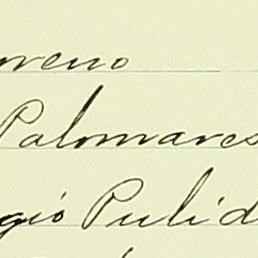 oreno
Palomares
gio Pulid